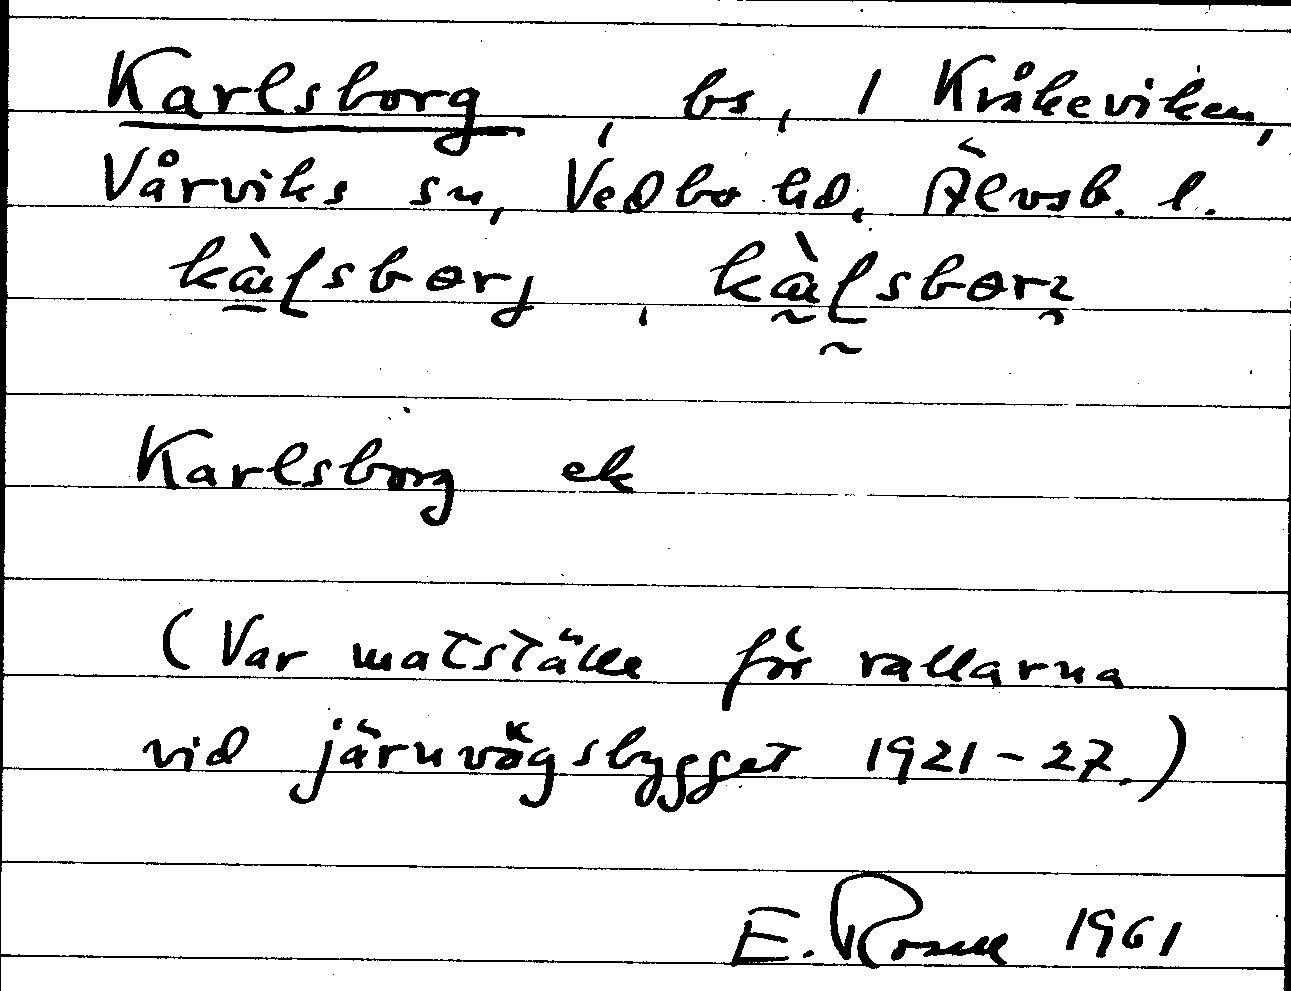 Karlsborg, bs, 1 Kråkeviken,
Vårviks sn, Vedbo hd, Älvsb. l.
Karlsborg ek
(Var matställe för rallarna
vid järnvägsbygget 1921-27.)
E. 1961